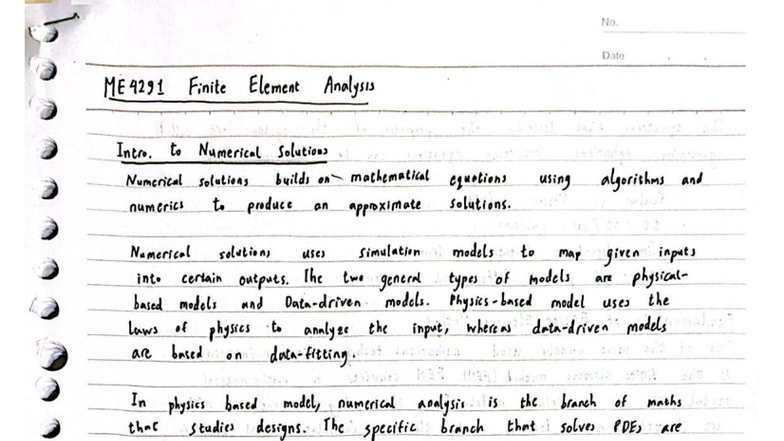 No.
Date
ME4291 Finite Element Analysis
Intro. to Numerical Solutions
Numerical solutions builds on mathematical equations using algorithms and
numerics to produce an approximate solutions.
Numerical solutions uses simulation models to map given inputs
into certain outputs. The two general types of models are physical-
based models and Data-driven models. Physics-based model uses the
laws of physics to analyze the input, whereas data-driven models
are based on data-fitting.
In physics based model, numerical analysis is the branch of maths
that studies designs. The specific branch that solves PDEs are